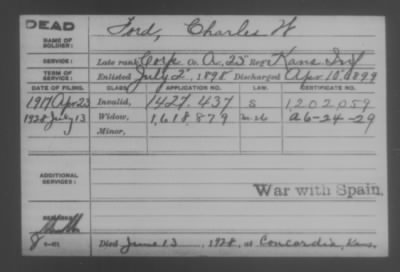 DEAD
NAME OF SOLDIER: Ford, Charles W
SERVICE: Late rank Corp. Co. A, 23" Reg't Kans Inf
TERM OF SERVICE: Enlisted July 2", 1898 Discharged Apr. 10, 1899
DATE OF FILING. CLASS. APPLICATION NO. LAW. CERTIFICATE NO.
1917 Apr 23 Invalid, 1427.437 S 1,202,059
1928 July 13 Widow, 1,618,879 A6-24-29
Minor,
ADDITIONAL SERVICES:
War with Spain.
REMARKS:
Died June 13, 1928, at Concordia, Kans.